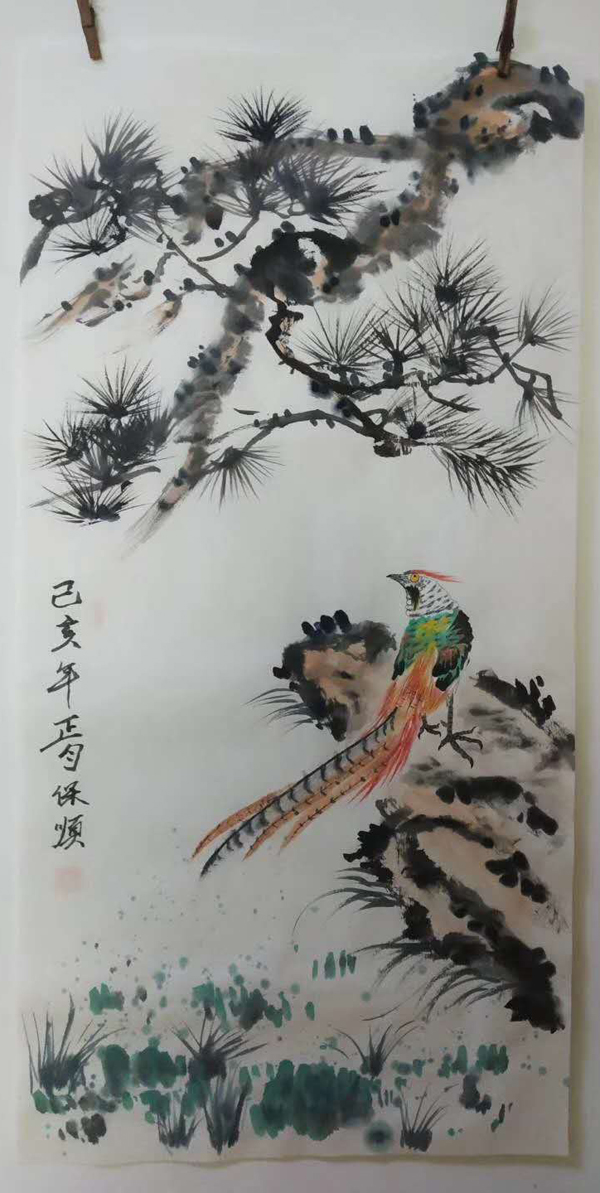 己亥年正月保順